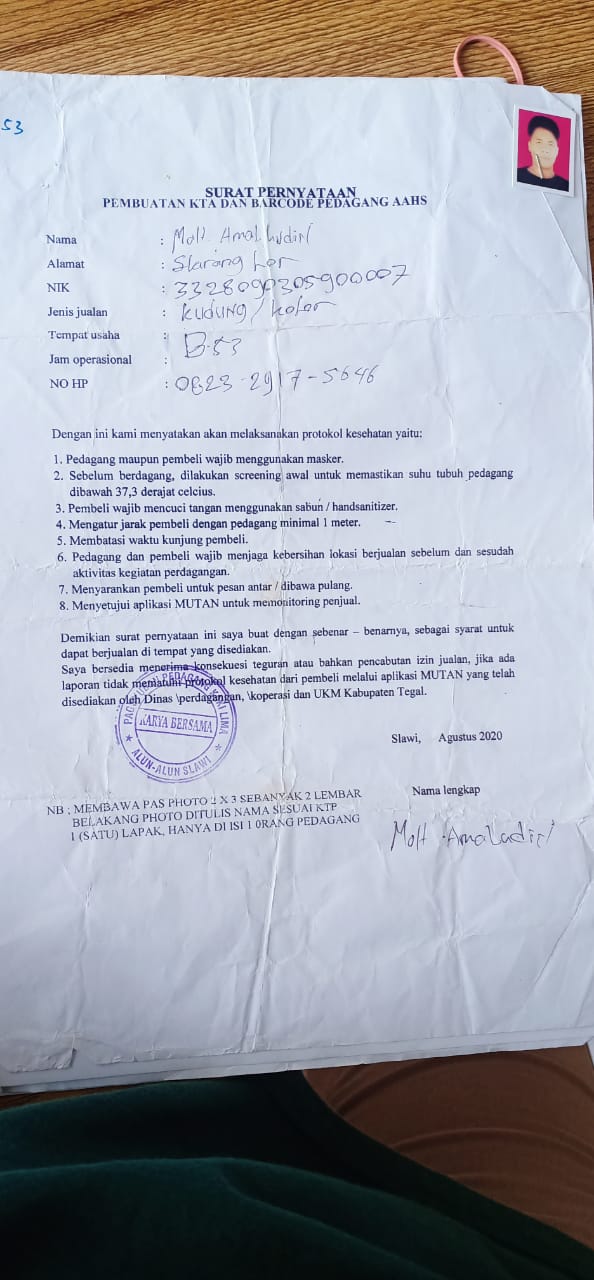 53
SURAT PERNYATAAN
PEMBUATAN KTA DAN BARCODE PEDAGANG AAHS
Nama : Moh. Amaludin
Alamat : Slarang Lor
NIK : 3328090305900007
Jenis jualan : kudung / kolor
Tempat usaha : B.53
Jam operasional :
NO HP : 0823-2917-5646
Dengan ini kami menyatakan akan melaksanakan protokol kesehatan yaitu:
1. Pedagang maupun pembeli wajib menggunakan masker.
2. Sebelum berdagang, dilakukan screening awal untuk memastikan suhu tubuh pedagang
dibawah 37,3 derajat celcius.
3. Pembeli wajib mencuci tangan menggunakan sabun / handsanitizer.
4. Mengatur jarak pembeli dengan pedagang minimal 1 meter.
5. Membatasi waktu kunjung pembeli.
6. Pedagang dan pembeli wajib menjaga kebersihan lokasi berjualan sebelum dan sesudah
aktivitas kegiatan perdagangan.
7. Menyarankan pembeli untuk pesan antar / dibawa pulang.
8. Menyetujui aplikasi MUTAN untuk memonitoring penjual.
Demikian surat pernyataan ini saya buat dengan sebenar – benarnya, sebagai syarat untuk
dapat berjualan di tempat yang disediakan.
Saya bersedia menerima konsekuesi teguran atau bahkan pencabutan izin jualan, jika ada
laporan tidak mematuhi protokol kesehatan dari pembeli melalui aplikasi MUTAN yang telah
disediakan oleh Dinas \perdagangan, \koperasi dan UKM Kabupaten Tegal.
PEDAGANG KAKI LIMA
KARYA BERSAMA
ALUN-ALUN SLAWI
Slawi, Agustus 2020
Nama lengkap
NB : MEMBAWA PAS PHOTO 2 X 3 SEBANYAK 2 LEMBAR
BELAKANG PHOTO DITULIS NAMA SESUAI KTP
1 (SATU) LAPAK, HANYA DI ISI 1 0RANG PEDAGANG
Moh. Amaludin